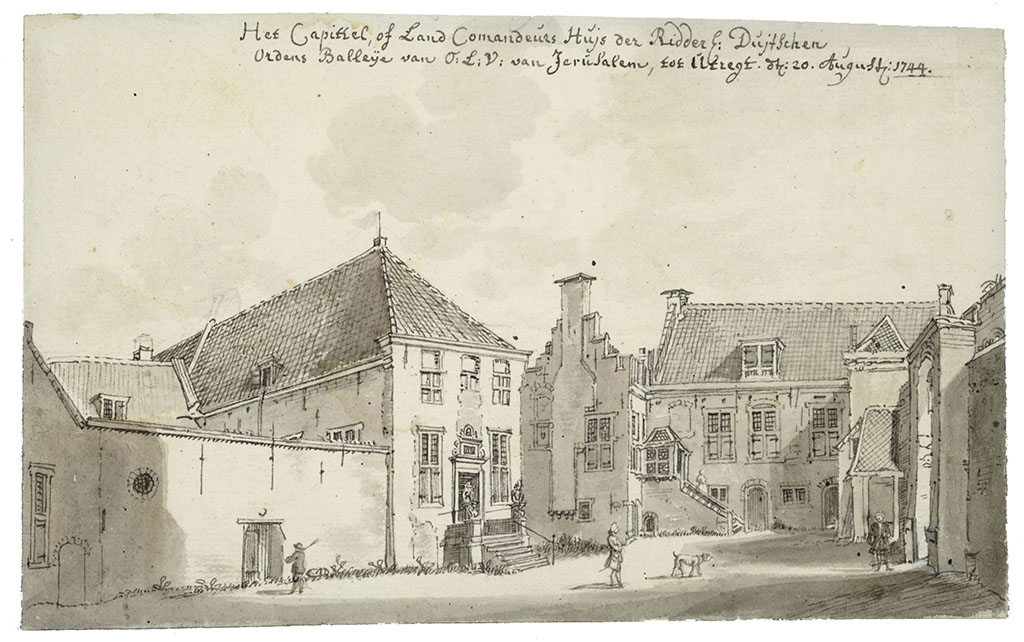 Het Capittel, of Land Comandeurs Huijs der Ridderl: Duijtschen,
Ordens Balleÿe van O: L: V: van Jerusalem, tot Utregt. dẽ: 20. August: 1744.